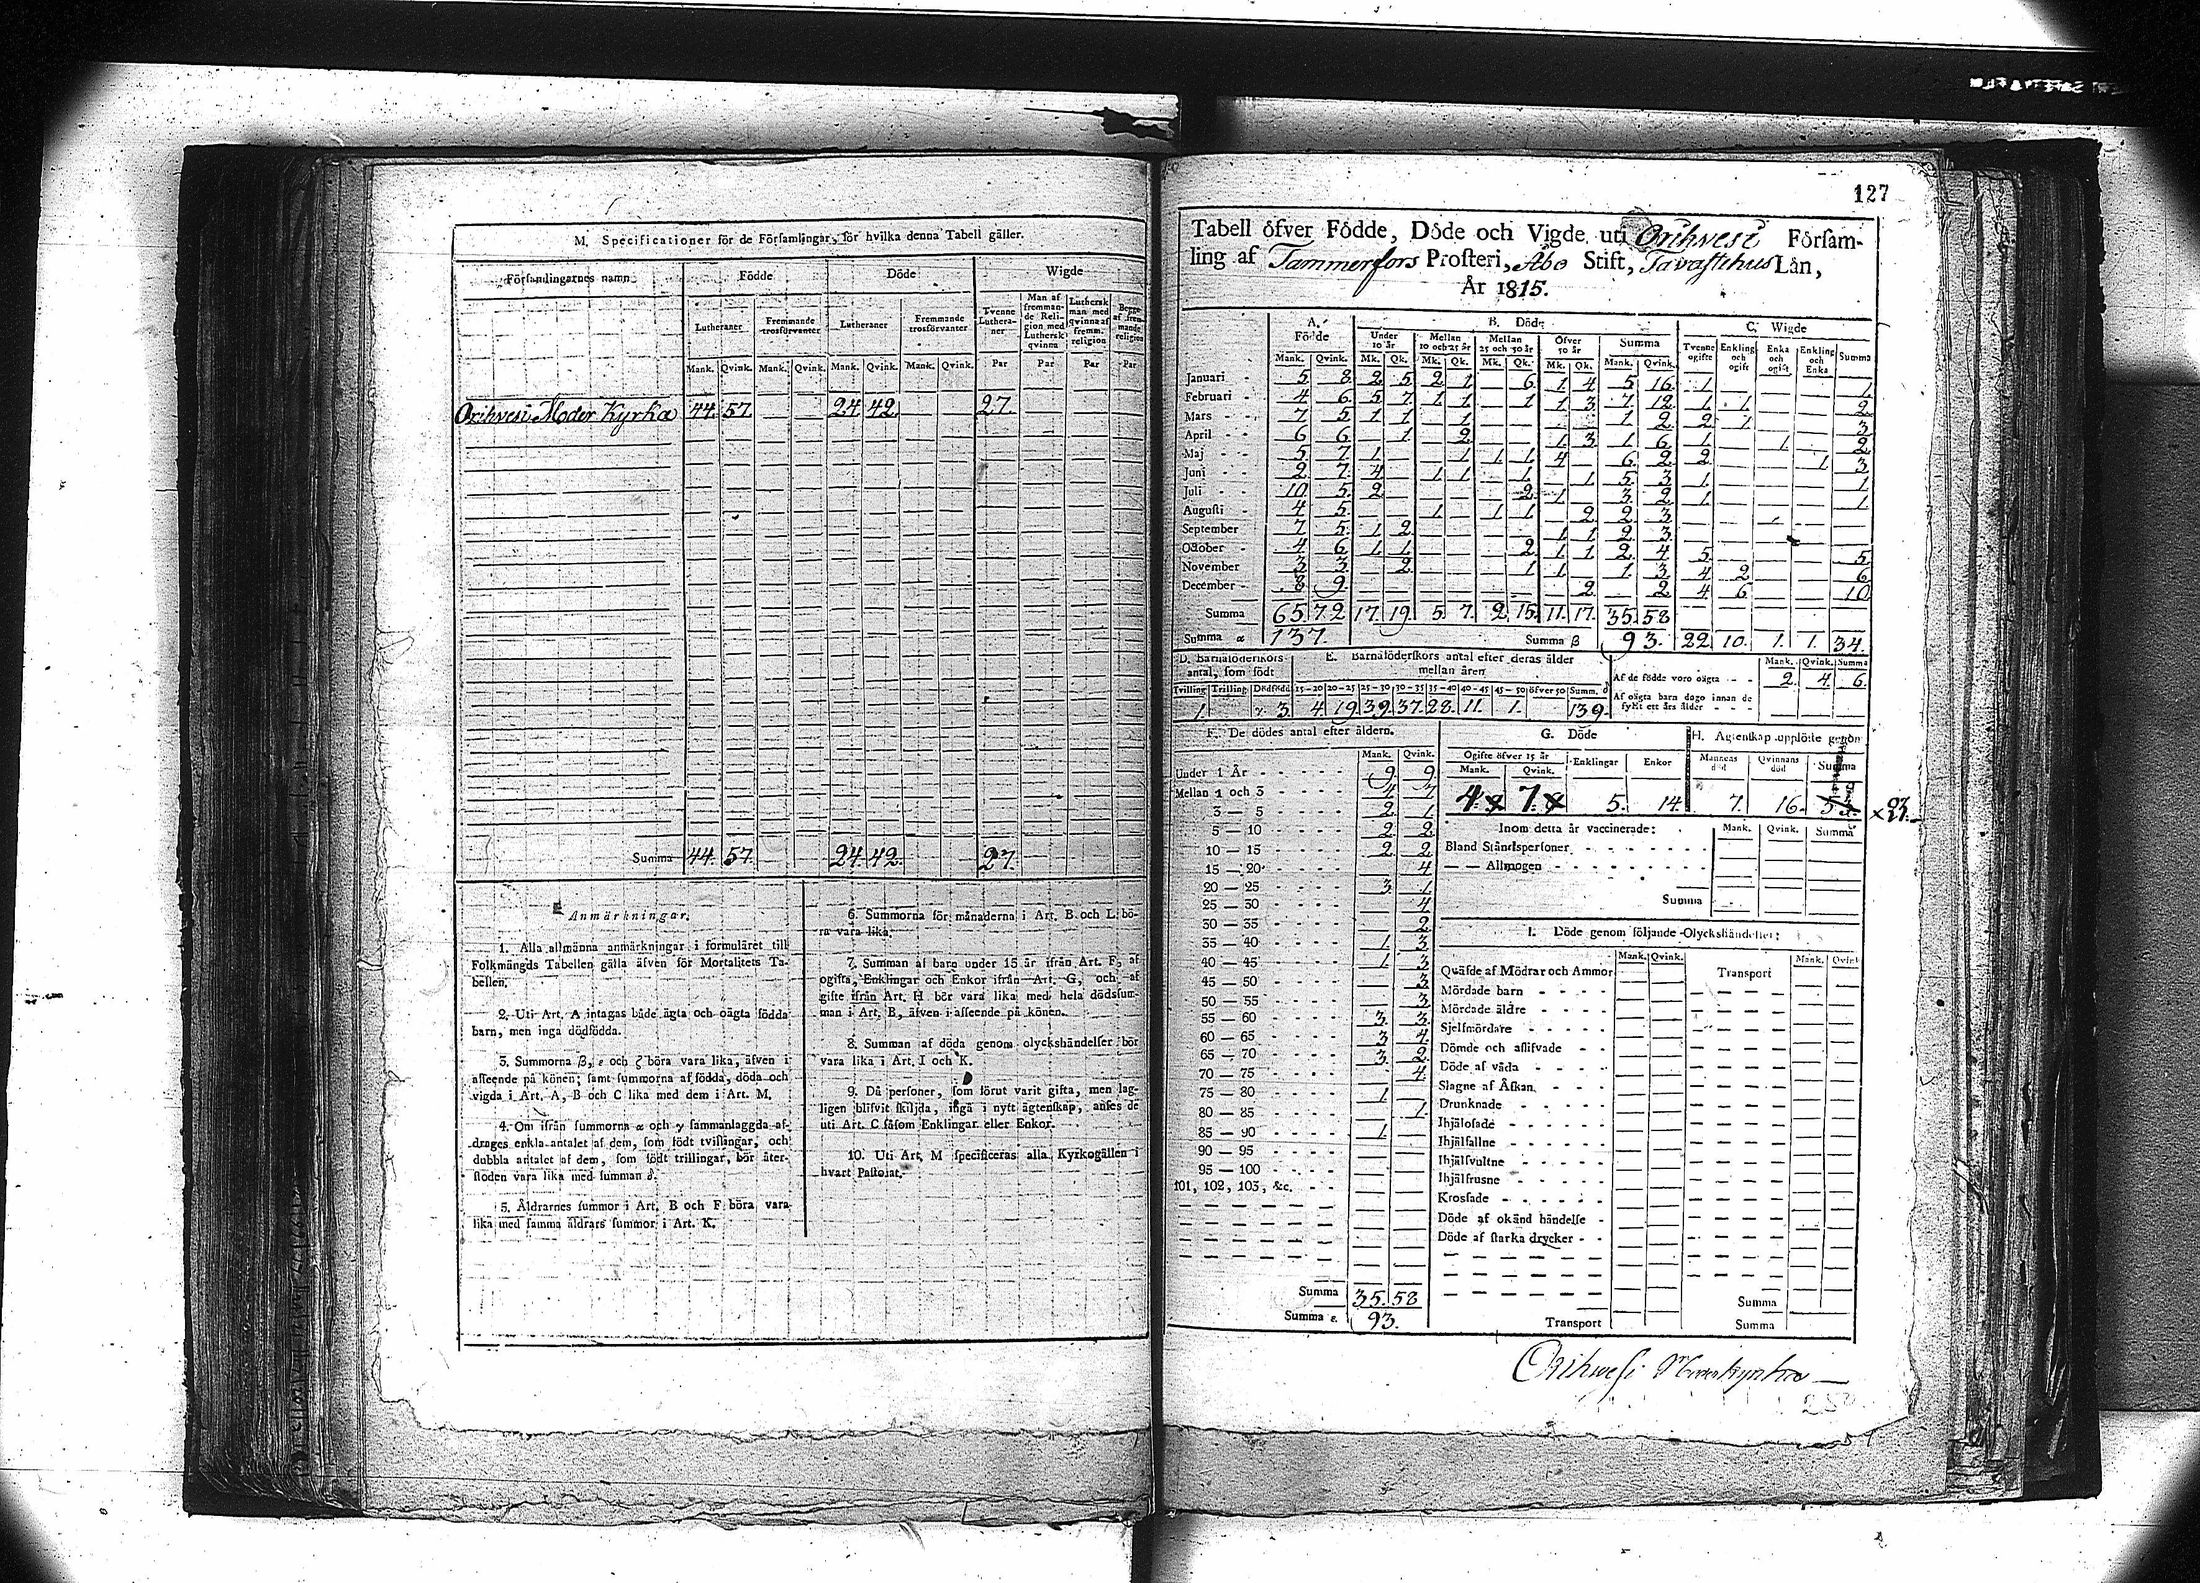 M. Specificationer för de Församlingar, för hvilka denna Tabell gäller.
Församlingarnes namn Födde Döde Wigde
Lutheraner Fremmande trosförvanter Lutheraner Fremmande trosförvanter Tvenne Lutheraner Man af fremmande Religion med Luthersk qvinna Luthersk man med qvinna af fremm. religion Begge af fremmande religion
Mank. Qvink. Mank. Qvink. Mank. Qvink. Mank. Qvink. Par Par Par Par
Orihvesi Moder Kyrka 44. 57. 24. 42. 27.
Summa 44. 57. 24. 42. 27.
Anmärkningar.
1. Alla allmänna anmärkningar i formuläret till
Folkmängds Tabellen gälla äfven för Mortalitets Ta-
bellen.
2. Uti Art. A intagas både ägta och oägta födda
barn, men inga dödfödda.
3. Summorna β, ε och ζ böra vara lika, äfven i
afseende på könen; samt summorna af födda, döda och
vigda i Art. A, B och C lika med dem i Art. M.
4. Om ifrån summorna α och γ sammanlaggda af-
drages enkla antalet af dem, som födt tvillingar, och
dubbla antalet af dem, som födt trillingar, bör åter-
stoden vara lika med summan δ.
5. Åldrarnes summor i Art. B och F böra vara
lika med samma åldrars summor i Art. K.
6. Summorna för månaderna i Art. B och L bö-
ra vara lika.
7. Summan af barn under 15 år ifrån Art. F, af
ogifta, Enklingar och Enkor ifrån Art. G, och af
gifte ifrån Art. H bör vara lika med hela dödssum-
man i Art. B, äfven i afseende på könen.
8. Summan af döda genom olyckshändelser bör
vara lika i Art. I och K.
9. Då personer, som förut varit gifta, men lag-
ligen blifvit skiljda, ingå i nytt ägtenskap, anses de
uti Art. C såsom Enklingar eller Enkor.
10. Uti Art. M specificeras alla Kyrkogällen i
hvart Pastorat.
127
Tabell öfver Födde, Döde och Vigde uti Orihvesi Försam-
ling af Tammerfors Prosteri, Åbo Stift, Tavastehus Län,
År 1815.
A. Födde B. Döde C. Wigde
Under 10 år Mellan 10 och 25 år Mellan 25 och 50 år Öfver 50 år Summa Tvenne ogifte Enkling och ogift Enka och ogift Enkling och Enka Summa
Mank. Qvink. Mk. Qk. Mk. Qk. Mk. Qk. Mk. Qk. Mank. Qvink.
Januari 5. 8. 2. 5. 2. 1. 6. 1. 4. 5. 16. 1. 1.
Februari 4. 6. 5. 7. 1. 1. 1. 1. 3. 7. 12. 1. 1. 2.
Mars 7. 5. 1. 1. 1. 1. 2. 2. 1. 3.
April 6. 6. 1. 2. 1. 3. 1. 6. 1. 1. 2.
Maj 5. 7. 1. 1. 1. 1. 4. 6. 2. 2. 1. 3.
Juni 2. 7. 4. 1. 1. 1. 1. 5. 3. 1. 1.
Juli 10. 5. 2. 2. 1. 3. 2. 1. 1.
Augusti 4. 5. 1. 1. 1. 2. 2. 3.
September 7. 5. 1. 2. 1. 1. 2. 3.
October 4. 6. 1. 1. 2. 1. 1. 2. 4. 5. 5.
November 3. 3. 2. 1. 1. 1. 3. 4. 2. 6.
December 8. 9. 2. 2. 4. 6. 10.
Summa 65. 72. 17. 19. 5. 7. 2. 15. 11. 17. 35. 58
Summa α 137. Summa β 93. 22. 10. 1. 1. 34.
D. Barnaföderskors antal, som födt E. Barnaföderskors antal efter deras ålder mellan åren Mank. Qvink. Summa
Af de födde voro oägta 2. 4. 6.
Tvilling Trilling Dödfödd 15-20 20-25 25-30 30-35 35-40 40-45 45-50 öfver 50 Summ. δ
Af oägta barn dogo innan de fyllt ett års ålder
1. γ. 3. 4 19 39. 37. 28. 11. 1. 139.
F. De dödes antal efter åldern.
Mank. Qvink.
Under 1 År 9. 9.
Mellan 1 och 3 4. 7
3 — 5 2. 1.
5 — 10 2. 2.
10 — 15 2. 2
15 — 20 4
20 — 25 3. 1.
25 — 30 4
30 — 35 2.
35 — 40 1. 3
40 — 45 1. 3
45 — 50 3.
50 — 55 3.
55 — 60 3. 3.
60 — 65 3 4
65 — 70 3. 2.
70 — 75 4.
75 — 80 1.
80 — 85 1.
85 — 90 1.
90 — 95
95 — 100
101, 102, 103, &c.
Summa 35. 58
Summa ε. 93.
G. Döde H. Ägtenskap upplöste genom
Ogifte öfver 15 år Enklingar Enkor Mannens död Qvinnans död Summa
Mank. Qvink.
4. 7. 5. 14. 7. 16. × 23.
Inom detta år vaccinerade: Mank. Qvink. Summa
Bland Ståndspersoner
— — Allmogen
Summa
I. Döde genom följande Olyckshändelser:
Mank. Qvink. Transport Mank. Qvink.
Quäfde af Mödrar och Ammor
Mördade barn
Mördade äldre
Sjelfmördare
Dömde och aflifvade
Döde af våda
Slagne af Åskan
Drunknade
Ihjälosade
Ihjälfallne
Ihjälsvultne
Ihjälfrusne
Krossade
Döde af okänd händelse
Döde af starka drycker
Summa
Transport Summa
Orihwesi Moderkyrka